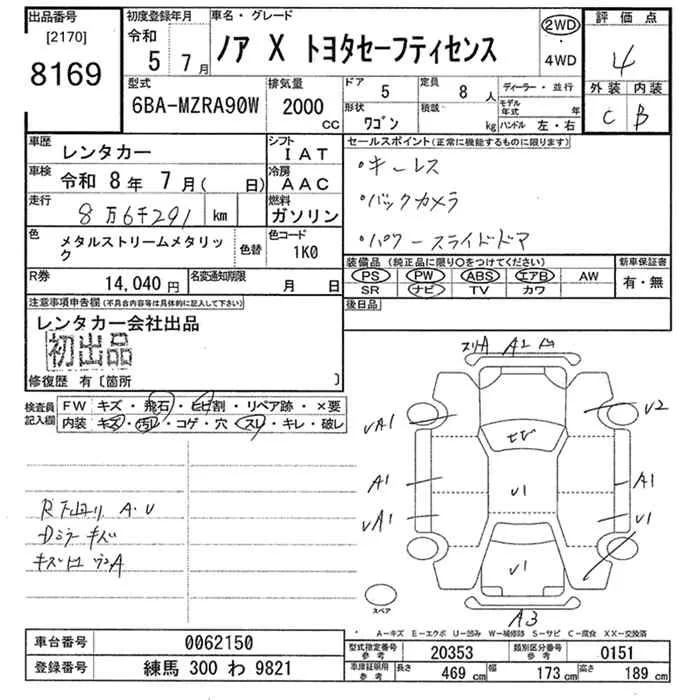 出品番号
[2170]
8169
初度登録年月
令和
5 7 月
車名・グレード
ノア X トヨタセーフティセンス
2WD
・
4WD
評価点
4
外装 内装
C B
型式
6BA-MZRA90W
排気量
2000
CC
ドア 5
形状 ワゴン
定員 8 人
積載 kg
ディーラー・並行
モデル年式 年
ハンドル 左・右
車歴 レンタカー
シフト
IAT
車検 令和 8 年 7 月( 日)
冷房
AAC
走行 8万6千291 km
燃料
ガソリン
色 メタルストリームメタリック
色替
色コード
1K0
R券 14,040 円
名変通知期限 月 日
セールスポイント(正常に機能するものに限ります)
・キーレス
・バックカメラ
・パワースライドドア
装備品(純正品に限り○をつけてください)
PS PW ABS エアB AW
SR ナビ TV カワ
新車保証書
有・無
後日品
注意事項申告欄(不具合内容等は具体的に記入して下さい)
レンタカー会社出品
初出品
修復歴 有〔箇所 〕
検査員記入欄
FW キズ・飛石・ヒビ割・リペア跡・×要
内装 キズ・汚レ・コゲ・穴・スレ・キレ・破レ
A1
VA1
V2
A1
A1
VA1
V1
V1
V1
A3
スペア
A−キズ E−エクボ U−凹み W−補修跡 S−サビ C−腐食 XX−交換済
車台番号 0062150
登録番号 練馬 300 わ 9821
型式指定番号 参考 20353
類別区分番号 参考 0151
車庫証明用 参考 長さ 469 cm 幅 173 cm 高さ 189 cm